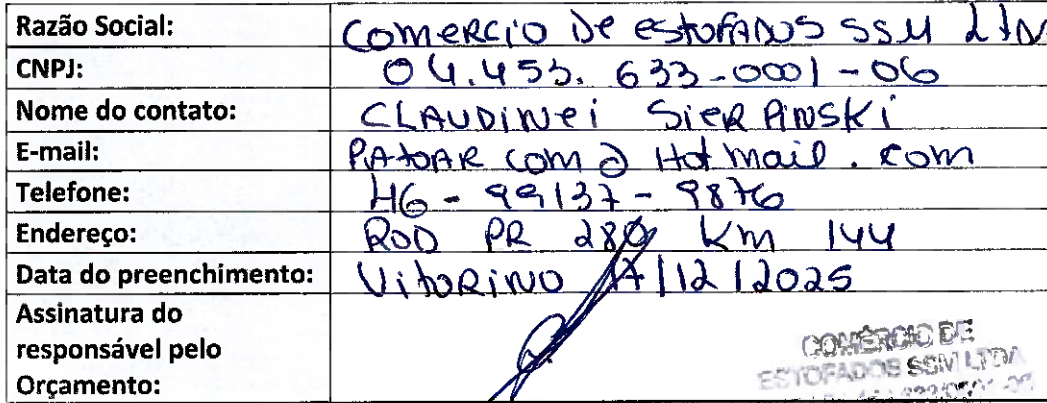 Razão Social: Comercio De estofados SSM LTDA
CNPJ: 04.455.633-0001-06
Nome do contato: CLAUDINEI SIERPINSKI
E-mail: PATOARCOM@Hotmail.com
Telefone: 46-99137-9876
Endereço: ROD PR 280 Km 144
Data do preenchimento: Vitorino 17/12/2025
Assinatura do
responsável pelo
Orçamento:
COMÉRCIO DE
ESTOFADOS SSM LTDA